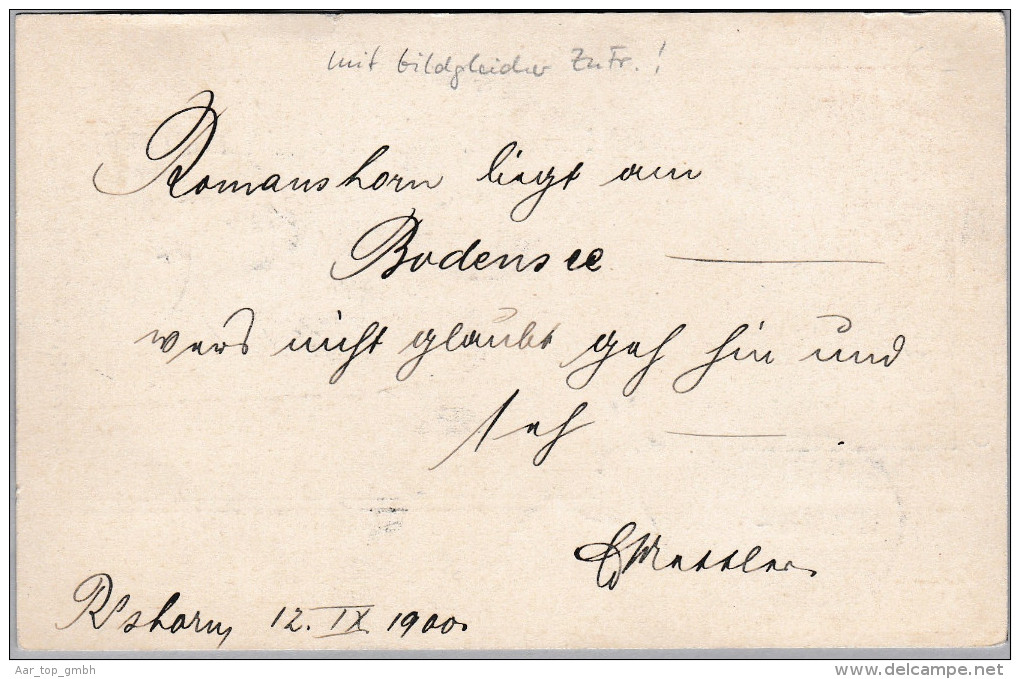 mit bildgleicher ZuFr.!
Romanshorn liegt am
Bodensee
wers nicht glaubt geh hin und
seh
Mettler
R'shorn, 12. IX 1900.
Aar_top_gmbh
www.delcampe.net